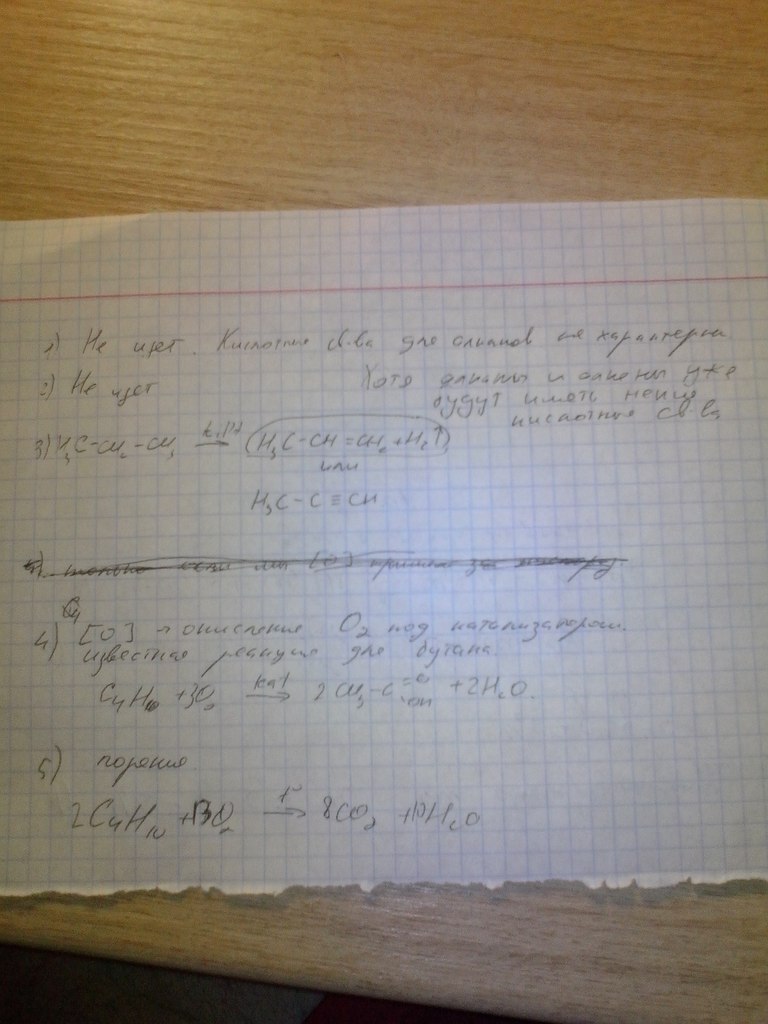 1) Не идет. Кислотные св-ва для алканов не характерны
2) Не идет
Хотя алкины и алкены уже
будут иметь некие
кислотные св-ва
3) H₃C-CH₂-CH₃ → (H₃C-CH=CH₂+H₂↑)
или
H₃C-C≡CH
4) [O] → окисление O₂ под катализатором.
известная реакция для бутана
C₄H₁₀ + 3O₂ kat → 2CH₃-C=O OH + 2H₂O.
5) горение
2C₄H₁₀ + 13O₂ t° → 8CO₂ + 10H₂O